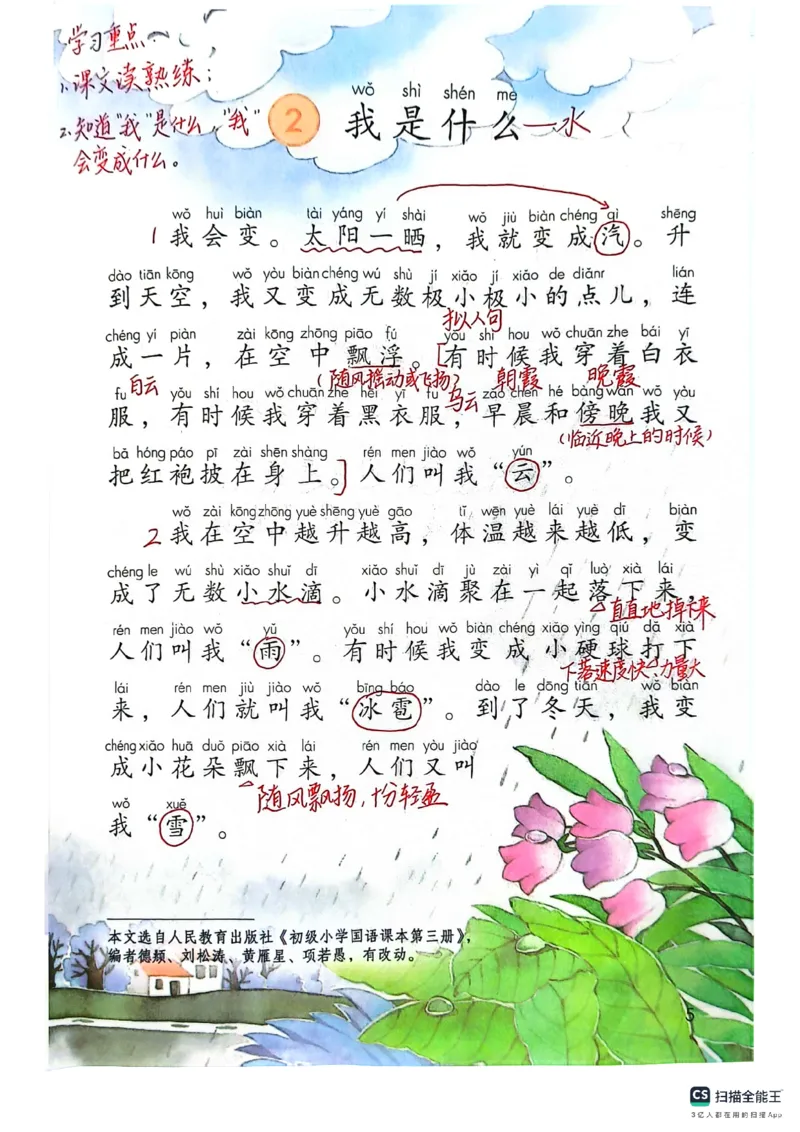 学习重点:
1.课文读熟练;
2.知道"我"是什么,"我"
会变成什么。
wǒ shì shén me
2 我是什么—水
wǒ huì biàn tài yáng yí shài wǒ jiù biàn chéng qì shēng
1 我会变。太阳一晒，我就变成汽。升
dào tiān kōng wǒ yòu biàn chéng wú shù jí xiǎo jí xiǎo de diǎnr lián
到天空，我又变成无数极小极小的点儿，连
拟人句
chéng yí piàn zài kōng zhōng piāo fú yǒu shí hou wǒ chuān zhe bái yī
成一片，在空中飘浮。[有时候我穿着白衣
白云 (随风摇动或飞扬) 乌云 朝霞 晚霞
fu yǒu shí hou wǒ chuān zhe hēi yī fu zǎo chén hé bàng wǎn wǒ yòu
服，有时候我穿着黑衣服，早晨和傍晚我又
(临近晚上的时候)
bǎ hóng páo pī zài shēn shàng rén men jiào wǒ yún
把红袍披在身上。]人们叫我“云”。
wǒ zài kōng zhōng yuè shēng yuè gāo tǐ wēn yuè lái yuè dī biàn
2 我在空中越升越高，体温越来越低，变
chéng le wú shù xiǎo shuǐ dī xiǎo shuǐ dī jù zài yì qǐ luò xià lái
成了无数小水滴。小水滴聚在一起落下来，
直直地掉下来
rén men jiào wǒ yǔ yǒu shí hou wǒ biàn chéng xiǎo yìng qiú dǎ xià
人们叫我“雨”。有时候我变成小硬球打下
下落速度快、力量大
lái rén men jiù jiào wǒ bīng báo dào le dōng tiān wǒ biàn
来，人们就叫我“冰雹”。到了冬天，我变
chéng xiǎo huā duǒ piāo xià lái rén men yòu jiào
成小花朵飘下来，人们又叫
随风飘扬,十分轻盈
wǒ xuě
我“雪”。
本文选自人民教育出版社《初级小学国语课本第三册》，
编者德颊、刘松涛、黄雁星、项若愚，有改动。
5
CS 扫描全能王
3亿人都在用的扫描App